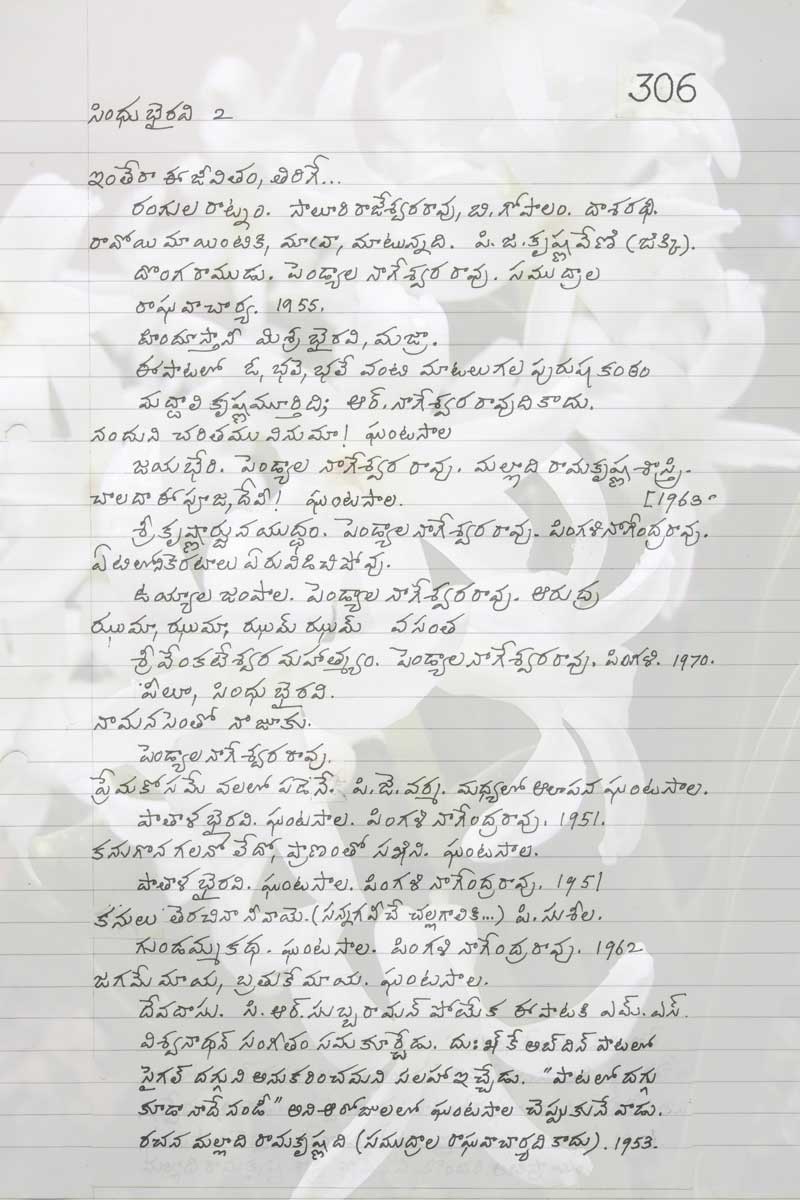 306
సింధు భైరవి 2
ఇంతేరా ఈ జీవితం, తిరిగే...
రంగుల రాట్నం. సాలూరి రాజేశ్వరరావు, బి. గోపాలం. దాశరథి.
రావోయి మా యింటికి, మావా, మాటున్నది. పి. జి. కృష్ణవేణి (జిక్కి).
దొంగ రాముడు. పెండ్యాల నాగేశ్వర రావు. సముద్రాల
రాఘవాచార్య. 1955.
హిందూస్తానీ మిశ్ర భైరవి, ముజ్రా.
ఈ పాటలో ఓ, భలె, భలే వంటి మాటలుగల పురుష కంఠం
మద్దాలి కృష్ణమూర్తిది; ఆర్. నాగేశ్వర రావుది కాదు.
నందుని చరితము వినుమా! ఘంటసాల
జయభేరి. పెండ్యాల నాగేశ్వర రావు. మల్లాది రామకృష్ణ శాస్త్రి.
చాలదా ఈ పూజ, దేవీ! ఘంటసాల. [1963.
శ్రీ కృష్ణార్జున యుద్ధం. పెండ్యాల నాగేశ్వర రావు. పింగళి నాగేంద్రరావు.
ఏటిలోని కెరటాలు ఏరు విడిచి పోవు.
ఉయ్యాల జంపాల. పెండ్యాల నాగేశ్వర రావు. ఆరుద్ర
ఝుమా, ఝుమా, ఝుమ్ ఝుమ్ వసంత
శ్రీ వేంకటేశ్వర మహాత్మ్యం. పెండ్యాల నాగేశ్వర రావు. పింగళి. 1970.
పీలూ, సింధు భైరవి.
నా మనసెంతో నాజూకు.
పెండ్యాల నాగేశ్వర రావు.
ప్రేమకోసమే వలలో పడెనే. పి. జె. వర్మ. మధ్యలో ఆలాపన ఘంటసాల.
పాతాళ భైరవి. ఘంటసాల. పింగళి నాగేంద్రరావు. 1951.
కనుగొన గలనో లేదో, ప్రాణంతో సఖిని. ఘంటసాల.
పాతాళ భైరవి. ఘంటసాల. పింగళి నాగేంద్రరావు. 1951
కనులు తెరచినా నీవాయె. (సన్నగ వీచే చల్లగాలికి...) పి. సుశీల.
గుండమ్మ కథ. ఘంటసాల. పింగళి నాగేంద్రరావు. 1962
జగమే మాయ, బ్రతుకే మాయ. ఘంటసాల.
దేవదాసు. సి. ఆర్. సుబ్బరామన్ పోయేక ఈ పాటకి ఎమ్. ఎస్.
విశ్వనాథన్ సంగీతం సమకూర్చేడు. దుఃఖ్ కే అబ్ దిన్ పాటలో
సైగల్ దగ్గుని అనుకరించమని సలహా ఇచ్చేడు. "పాటలో దగ్గు
కూడా నాదే నండీ" అని ఆ రోజులలో ఘంటసాల చెప్పుకునే వాడు.
రచన మల్లాది రామకృష్ణది (సముద్రాల రాఘవాచార్యది కాదు). 1953.